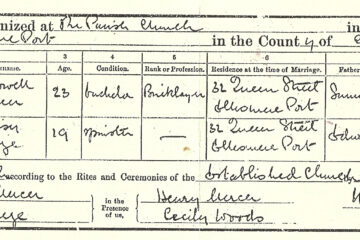 nized at The Parish Church
Port in the County of
3 4 5 6
name. Age. Condition. Rank or Profession. Residence at the time of Marriage. Father
23 bachelor Bricklayer 32 Queen Street
Ellesmere Port
19 spinster — 32 Queen Street
Ellesmere Port
according to the Rites and Ceremonies of the Established Church
Mercer in the Presence of us, Henry Mercer
Cecily Woods